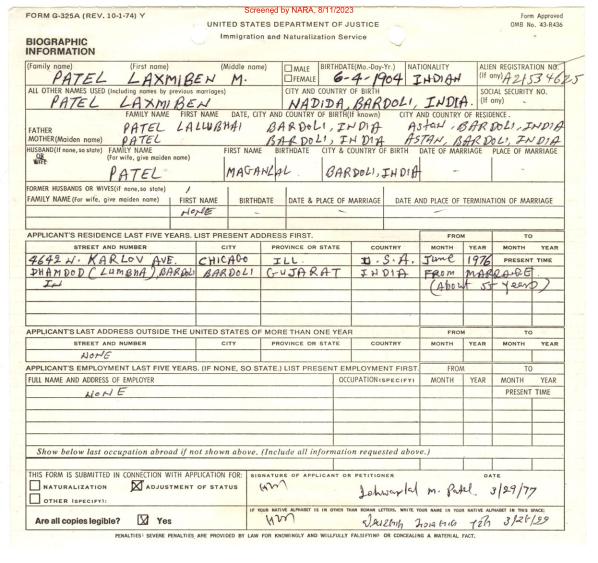 Screened by NARA, 8/11/2023
FORM G-325A (REV. 10-1-74) Y
UNITED STATES DEPARTMENT OF JUSTICE
Form Approved
OMB No. 43-R436
Immigration and Naturalization Service
BIOGRAPHIC
INFORMATION
(Family name) (First name) (Middle name) MALE FEMALE BIRTHDATE(Mo.-Day-Yr.) NATIONALITY ALIEN REGISTRATION NO. (If any)
PATEL LAXMIBEN M. 6-4-1904 INDIAN A21534625
ALL OTHER NAMES USED (Including names by previous marriages) CITY AND COUNTRY OF BIRTH SOCIAL SECURITY NO. (If any)
PATEL LAXMIBEN NADIDA, BARDOLI, INDIA. -
FAMILY NAME FIRST NAME DATE, CITY AND COUNTRY OF BIRTH(If known) CITY AND COUNTRY OF RESIDENCE.
FATHER PATEL LALLUBHAI BARDOLI, INDIA ASTAN, BARDOLI, INDIA
MOTHER(Maiden name) PATEL BARDOLI, INDIA ASTAN, BARDOLI, INDIA
HUSBAND(If none, so state) OR WIFE FAMILY NAME (For wife, give maiden name) FIRST NAME BIRTHDATE CITY & COUNTRY OF BIRTH DATE OF MARRIAGE PLACE OF MARRIAGE
PATEL MAGANLAL BARDOLI, INDIA - -
FORMER HUSBANDS OR WIVES(if none, so state)
FAMILY NAME (For wife, give maiden name) FIRST NAME BIRTHDATE DATE & PLACE OF MARRIAGE DATE AND PLACE OF TERMINATION OF MARRIAGE
NONE - - -
APPLICANT'S RESIDENCE LAST FIVE YEARS. LIST PRESENT ADDRESS FIRST. FROM TO
STREET AND NUMBER CITY PROVINCE OR STATE COUNTRY MONTH YEAR MONTH YEAR
4642 N. KARLOV AVE. CHICAGO ILL. U.S.A. June 1976 PRESENT TIME
DHAMDOD (LUMBHA), BARDOLI BARDOLI GUJARAT INDIA FROM MARRAGE.
IN (About 55 years)
APPLICANT'S LAST ADDRESS OUTSIDE THE UNITED STATES OF MORE THAN ONE YEAR FROM TO
STREET AND NUMBER CITY PROVINCE OR STATE COUNTRY MONTH YEAR MONTH YEAR
NONE
APPLICANT'S EMPLOYMENT LAST FIVE YEARS. (IF NONE, SO STATE.) LIST PRESENT EMPLOYMENT FIRST. FROM TO
FULL NAME AND ADDRESS OF EMPLOYER OCCUPATION(SPECIFY) MONTH YEAR MONTH YEAR
NONE PRESENT TIME
Show below last occupation abroad if not shown above. (Include all information requested above.)
THIS FORM IS SUBMITTED IN CONNECTION WITH APPLICATION FOR: SIGNATURE OF APPLICANT OR PETITIONER DATE
NATURALIZATION ADJUSTMENT OF STATUS
M. Patel 3/29/77
OTHER (SPECIFY):
IF YOUR NATIVE ALPHABET IS IN OTHER THAN ROMAN LETTERS, WRITE YOUR NAME IN YOUR NATIVE ALPHABET IN THIS SPACE:
Are all copies legible? Yes
PENALTIES: SEVERE PENALTIES ARE PROVIDED BY LAW FOR KNOWINGLY AND WILLFULLY FALSIFYING OR CONCEALING A MATERIAL FACT.